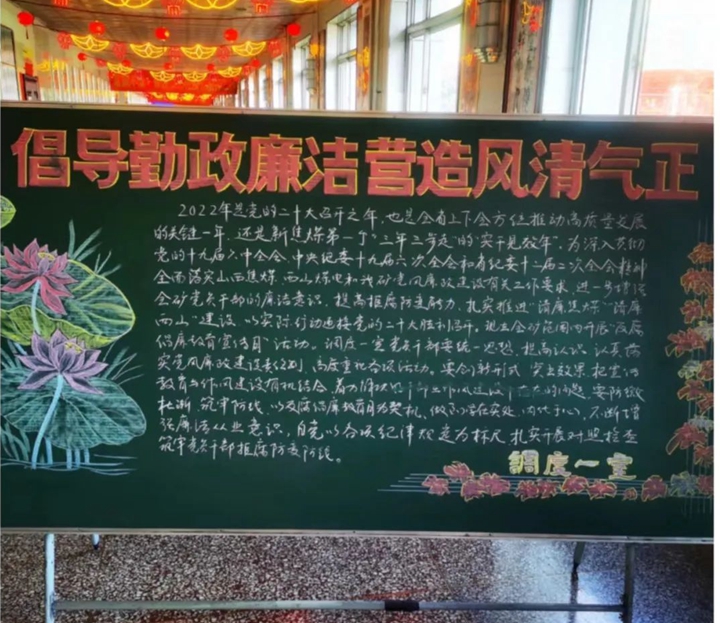 倡导勤政廉洁营造风清气正
2022年是党的二十大召开之年，也是全省上下全方位推动高质量发展
的关键一年，还是新焦煤第一个"三年三步走"的"实干见效年"，为深入贯彻
党的十九届六中全会、中央纪委十九届六次全会和省纪委十二届二次全会精神
全面落实山西焦煤、西山煤电和我矿党风廉政建设有关工作要求，进一步增强
全矿党员干部的廉洁意识，提高拒腐防变能力，扎实推进"清廉焦煤""清廉
西山"建设，以实际行动迎接党的二十大胜利召开，现在全矿范围内开展"反腐
倡廉教育宣传月"活动。调度一室党员干部要统一思想，提高认识，认真落
实党风廉政建设责任制，高度重视各项活动。要创新形式，突出效果，把宣传
教育与作风建设有机结合，着力解决干部工作作风建设中存在的问题，要防微
杜渐，筑牢防线，以反腐倡廉教育月为契机，做到落在实处，内化于心，不断增
强廉洁从业意识，自觉以各项纪律规定为标尺，扎实开展对照检查
筑牢党员干部拒腐防变防线。
调度一室